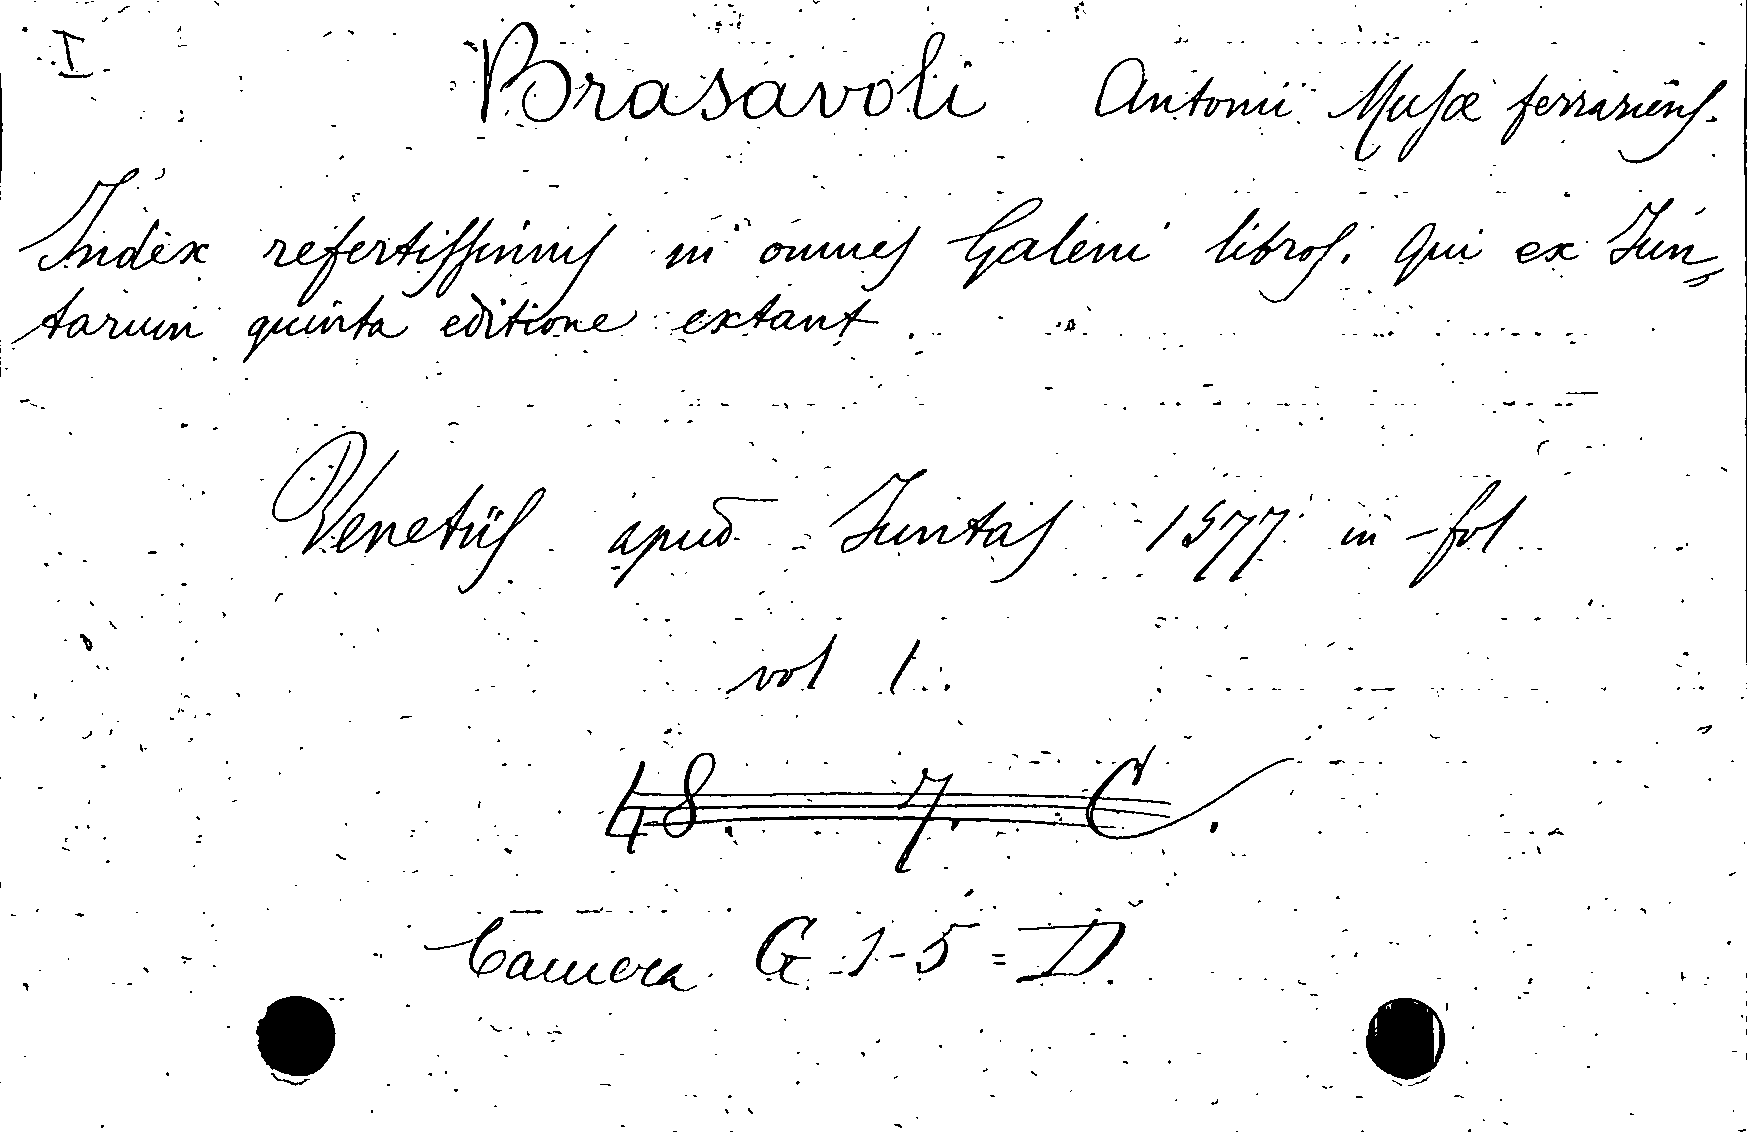 I
Brasavoli Antonii Musæ ferrariens.
Index refertissimus in omnes Galeni libros. Qui ex Jun=
tarum quinta editione extant.
Venetiis apud Juntas 1577 in-fol
vol 1.
48. 7. C.
Camera G-1-5=D.